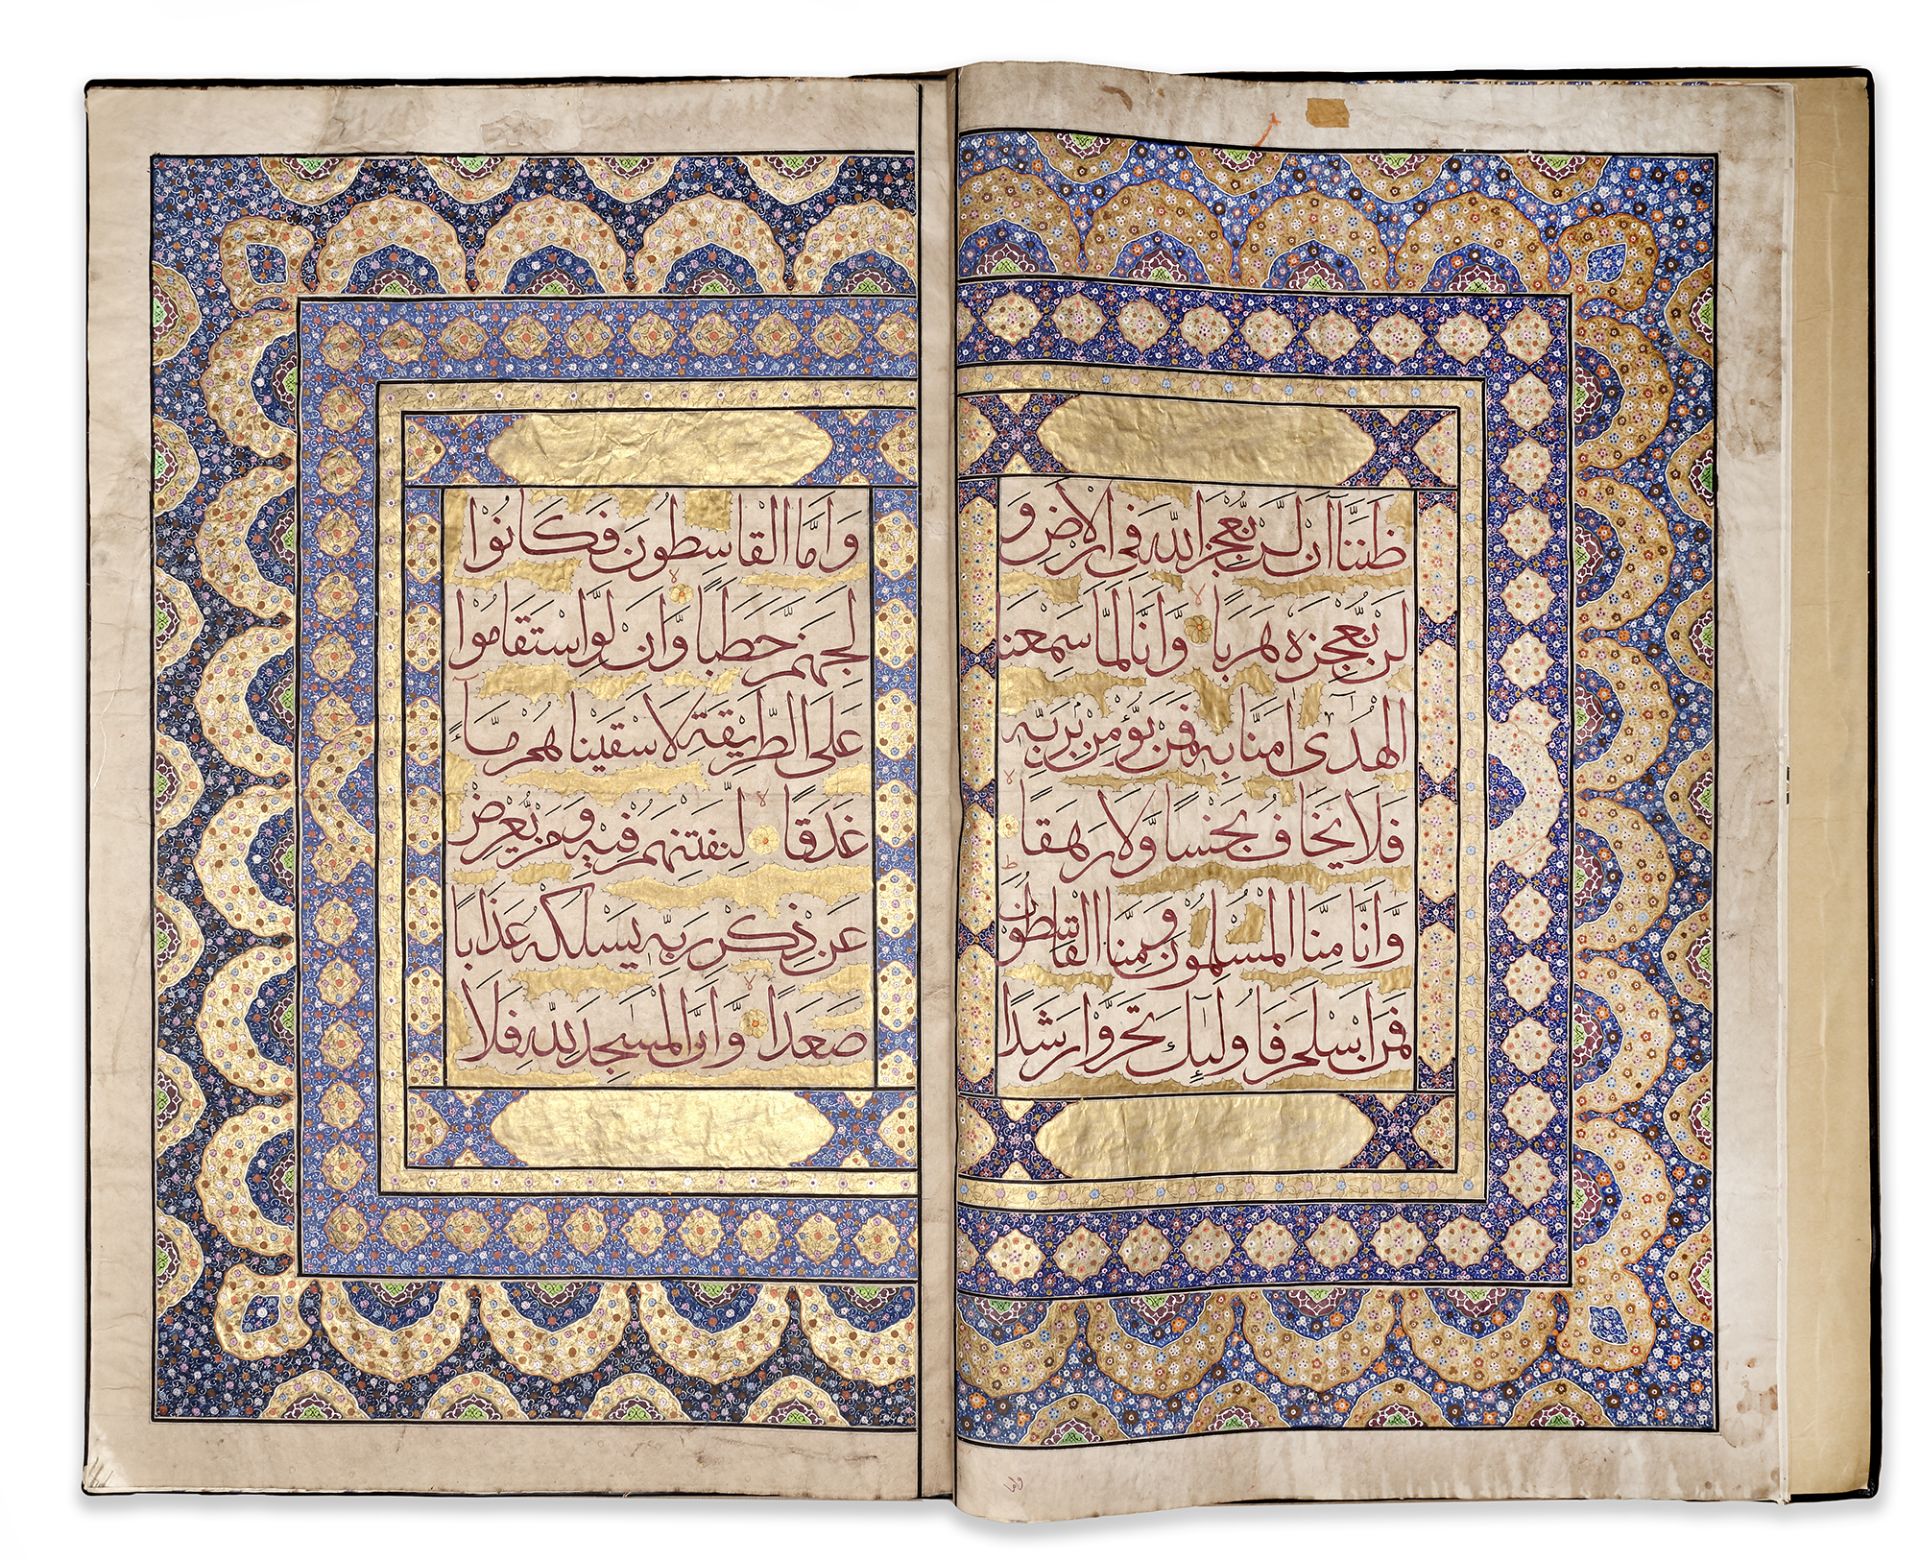 ظَنَنَّا اَنْ لَنْ نُعْجِزَ اللّٰهَ فِى الْاَرْضِ وَ
لَنْ نُعْجِزَهُ هَرَبًا وَّاَنَّا لَمَّا سَمِعْنَا
الْهُدٰٓى اٰمَنَّا بِهٖ فَمَنْ يُّؤْمِنْ بِرَبِّهٖ
فَلَا يَخَافُ بَخْسًا وَّلَا رَهَقًا
وَّاَنَّا مِنَّا الْمُسْلِمُوْنَ وَمِنَّا الْقَاسِطُوْنَ
فَمَنْ اَسْلَمَ فَاُولٰٓئِكَ تَحَرَّوْا رَشَدًا
وَاَمَّا الْقَاسِطُوْنَ فَكَانُوْا
لِجَهَنَّمَ حَطَبًا وَّاَنْ لَّوِ اسْتَقَامُوْا
عَلَى الطَّرِيْقَةِ لَاَسْقَيْنَاهُمْ مَّآءً
غَدَقًا لِنَفْتِنَهُمْ فِيْهِ وَمَنْ يُّعْرِضْ
عَنْ ذِكْرِ رَبِّهٖ يَسْلُكْهُ عَذَابًا
صَعَدًا وَّاَنَّ الْمَسٰجِدَ لِلّٰهِ فَلَا